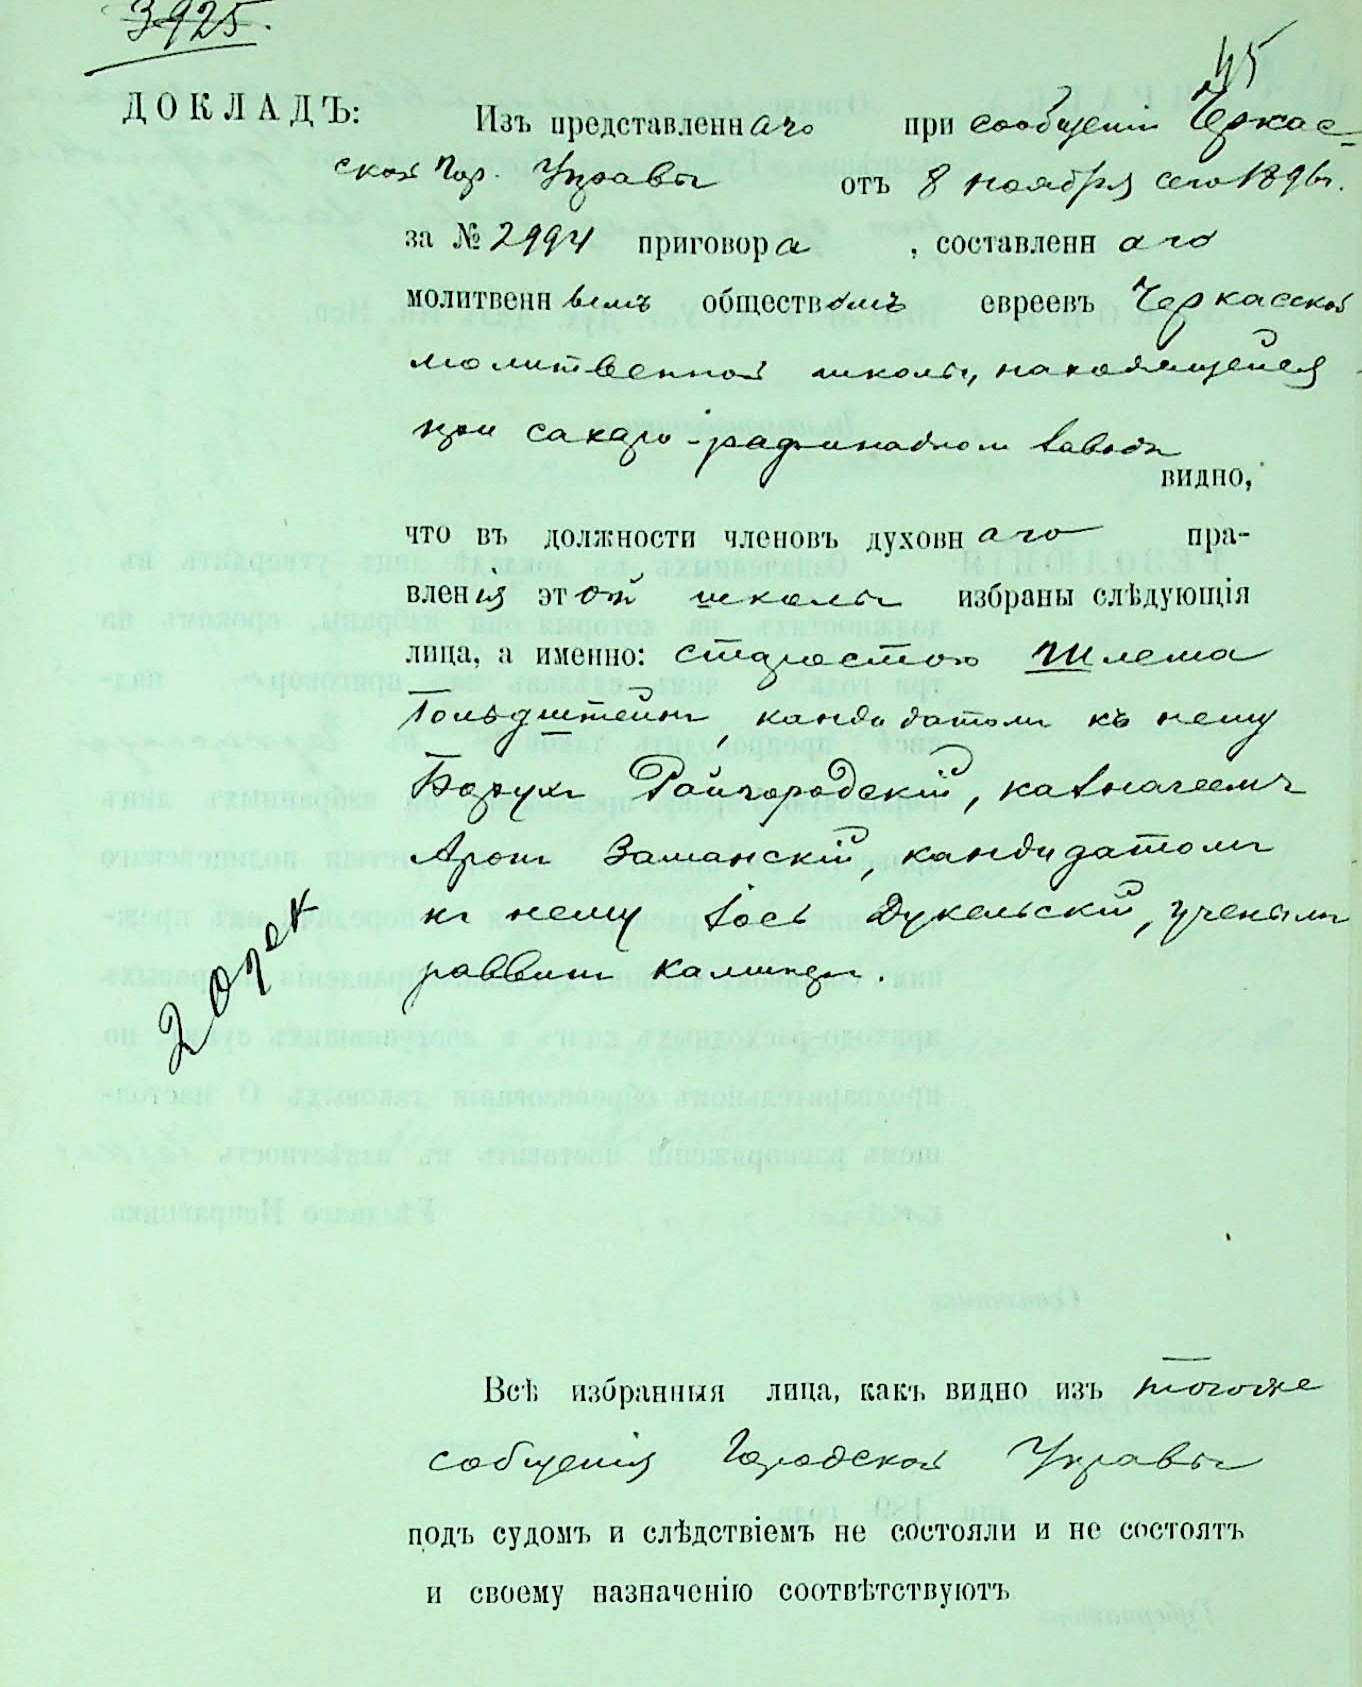 3925.
45
ДОКЛАДЪ:
Изъ представленнаго при сообщеніи Черкас-
ской Гор. Управы отъ 8 ноября сего 1896 г.
за № 2994 приговора, составленнаго
молитвеннымъ обществомъ евреевъ Черкасской
молитвенной школы, находящейся
при сахаро-рафинадномъ заводѣ
видно,
что въ должности членовъ духовнаго пра-
вленія этой школы избраны слѣдующія
лица, а именно: старостою Шлема
Гольдштейнъ, кандидатомъ къ нему
Борухъ Райгородскій, казначеемъ
Аронъ Заманскій, кандидатомъ
къ нему Іось Дукельскій, ученымъ
раввинъ
Всѣ избранныя лица, какъ видно изъ тогоже
собщенія Городской Управы
подъ судомъ и слѣдствіемъ не состояли и не состоятъ
и своему назначенію соотвѣтствуютъ